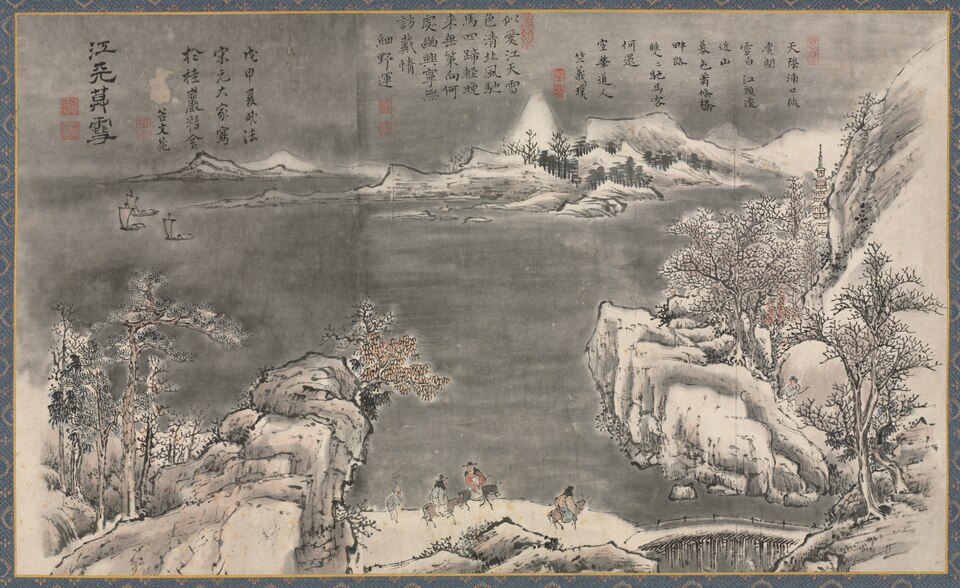 天際浦口
虚閣
雪白江頭遠
近山
暮色蕭條橋
畔路
馳馬客
何還
空拳道人
竺義璞
似愛江天雪
色清北風馳
馬四蹄輕晩
来無策向何
處幽興寧無
訪戴情
細野運
戊申夏晩法
宋元大家寫
松桂巖精舎
谷文晁
江天莫雪